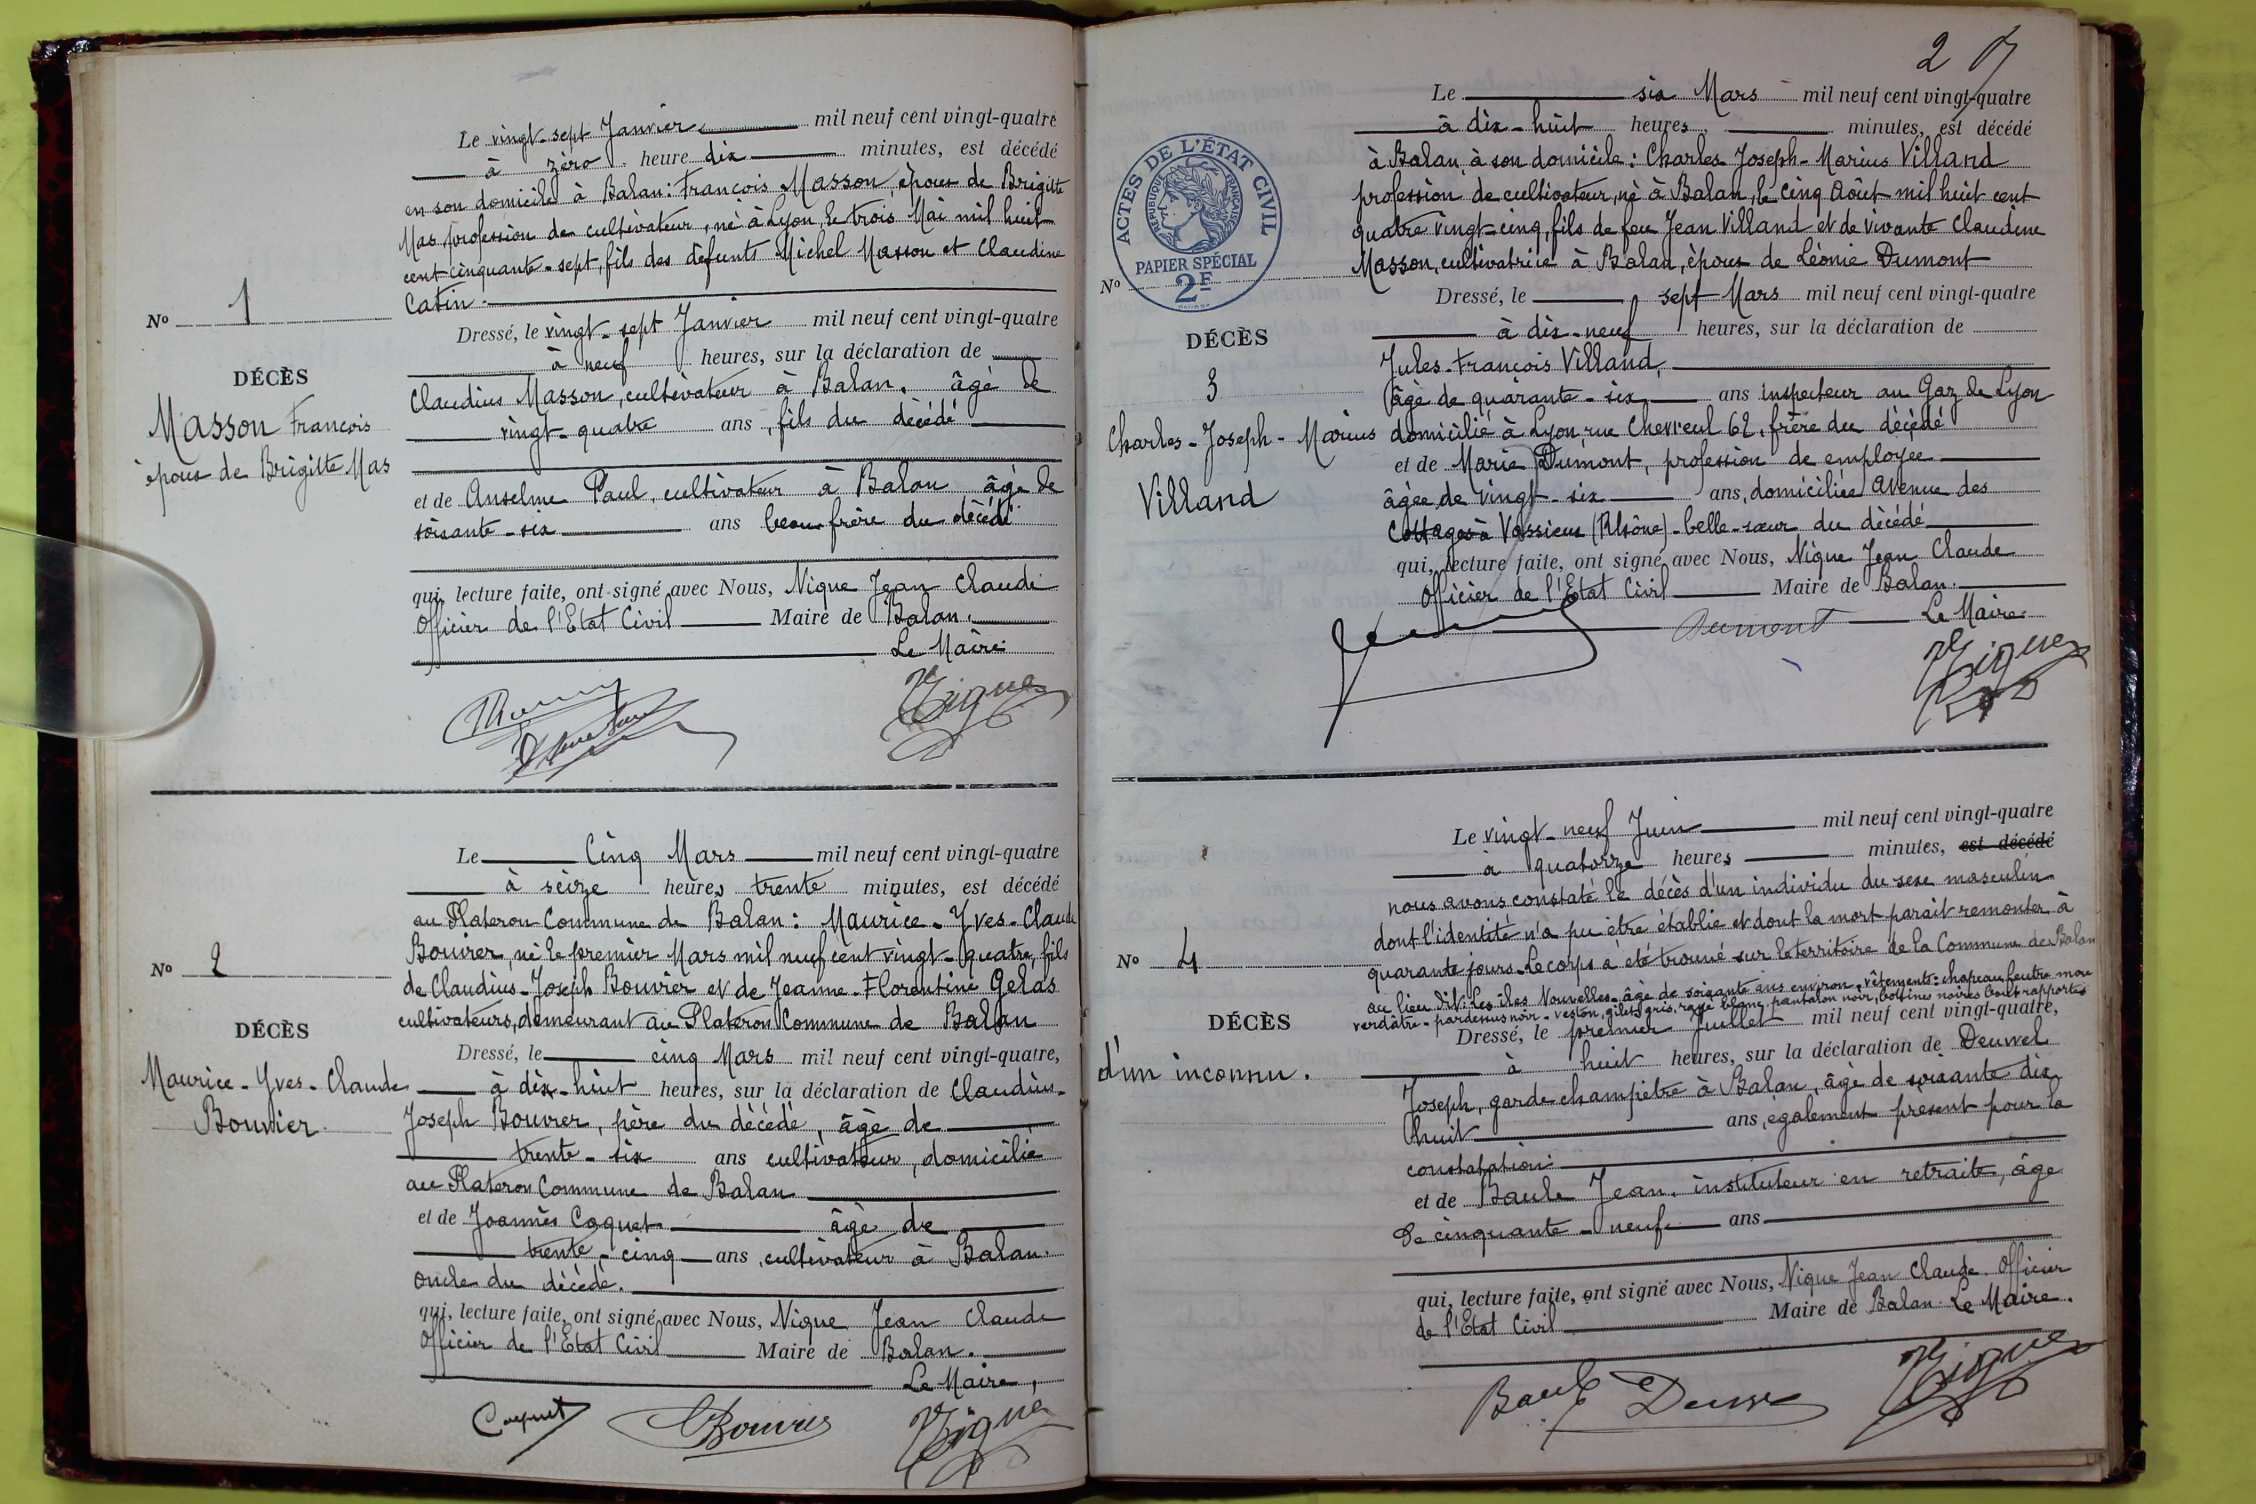 Le vingt-sept Janvier mil neuf cent vingt-quatre
à zéro heure dix minutes, est décédé
en son domicile à Balan : François Masson, époux de Brigitte
Mas, profession de cultivateur, né à Lyon, le trois Mai mil huit
cent cinquante-sept, fils des défunts Michel Masson et Claudine
Catin.
No 1
Dressé, le vingt-sept Janvier mil neuf cent vingt-quatre
à neuf heures, sur la déclaration de
DÉCÈS
Claudius Masson, cultivateur à Balan. âgé de
Masson François
vingt-quatre ans, fils du décédé
époux de Brigitte Mas
et de Anselme Paul, cultivateur à Balan âgé de
soixante-six ans beau-frère du décédé
qui, lecture faite, ont signé avec Nous, Nique Jean Claude
Officier de l'Etat Civil Maire de Balan.
Le Maire
Nique
Le Cinq Mars mil neuf cent vingt-quatre
à seize heures trente minutes, est décédé
au Plateron Commune de Balan : Maurice-Yves-Claude
Bouvier, né le premier Mars mil neuf cent vingt-quatre, fils
No 2
de Claudius-Joseph Bouvier et de Jeanne-Florentine Gelas
cultivateurs, demeurant au Plateron Commune de Balan
DÉCÈS
Dressé, le cinq Mars mil neuf cent vingt-quatre,
Maurice-Yves-Claude
à dix-huit heures, sur la déclaration de Claudius-
Bouvier
Joseph Bouvier, père du décédé, âgé de
trente-six ans cultivateur, domicilié
au Plateron Commune de Balan
et de Joannès Coquet âgé de
trente-cinq ans, cultivateur à Balan.
oncle du décédé.
qui, lecture faite, ont signé avec Nous, Nique Jean Claude
Officier de l'Etat Civil Maire de Balan.
Le Maire,
Coquet Bouvier Nique
2
Le six Mars mil neuf cent vingt-quatre
à dix-huit heures, minutes, est décédé
à Balan, à son domicile : Charles Joseph-Marius Villand
profession de cultivateur, né à Balan, le cinq Août mil huit cent
quatre vingt-cinq, fils de feu Jean Villand et de vivante Claudine
Masson, cultivatrice à Balan, époux de Léonie Dumont
ACTES DE L'ÉTAT CIVIL
RÉPUBLIQUE FRANÇAISE
PAPIER SPÉCIAL
2F
No
Dressé, le sept Mars mil neuf cent vingt-quatre
à dix-neuf heures, sur la déclaration de
DÉCÈS
Jules-François Villand,
3
âgé de quarante-six ans inspecteur au Gaz de Lyon
Charles-Joseph-Marius
domicilié à Lyon, rue Chevreul 62, frère du décédé
Villand
et de Marie Dumont, profession de employée
âgée de vingt-six ans, domiciliée avenue des
Cottages à Vassieux (Rhône)-belle-sœur du décédé
qui, lecture faite, ont signé avec Nous, Nique Jean Claude
Officier de l'Etat Civil Maire de Balan.
Dumont Le Maire
Nique
Le vingt-neuf Juin mil neuf cent vingt-quatre
à quatorze heures minutes, est décédé
nous avons constaté le décès d'un individu du sexe masculin
dont l'identité n'a pu être établie et dont la mort parait remonter à
No 4
quarante jours. Le corps a été trouvé sur le territoire de la Commune de Balan
au lieu dit : Les îles Nouvelles-âgé de soixante ans environ-vêtements : chapeau feutre mou
verdâtre-pardessus noir-veston, gilet gris, rayé blanc, pantalon noir, bottines noires bout rapportés
DÉCÈS
Dressé, le premier Juillet mil neuf cent vingt-quatre,
d'un inconnu.
à huit heures, sur la déclaration de Deuvrel
Joseph, garde champêtre à Balan, âgé de soixante dix
huit ans, également présent pour la
constatation
et de Baule Jean, instituteur en retraite, âge
de cinquante-neuf ans
qui, lecture faite, ont signé avec Nous, Nique Jean Claude Officier
de l'Etat Civil Maire de Balan Le Maire.
Baule Nique